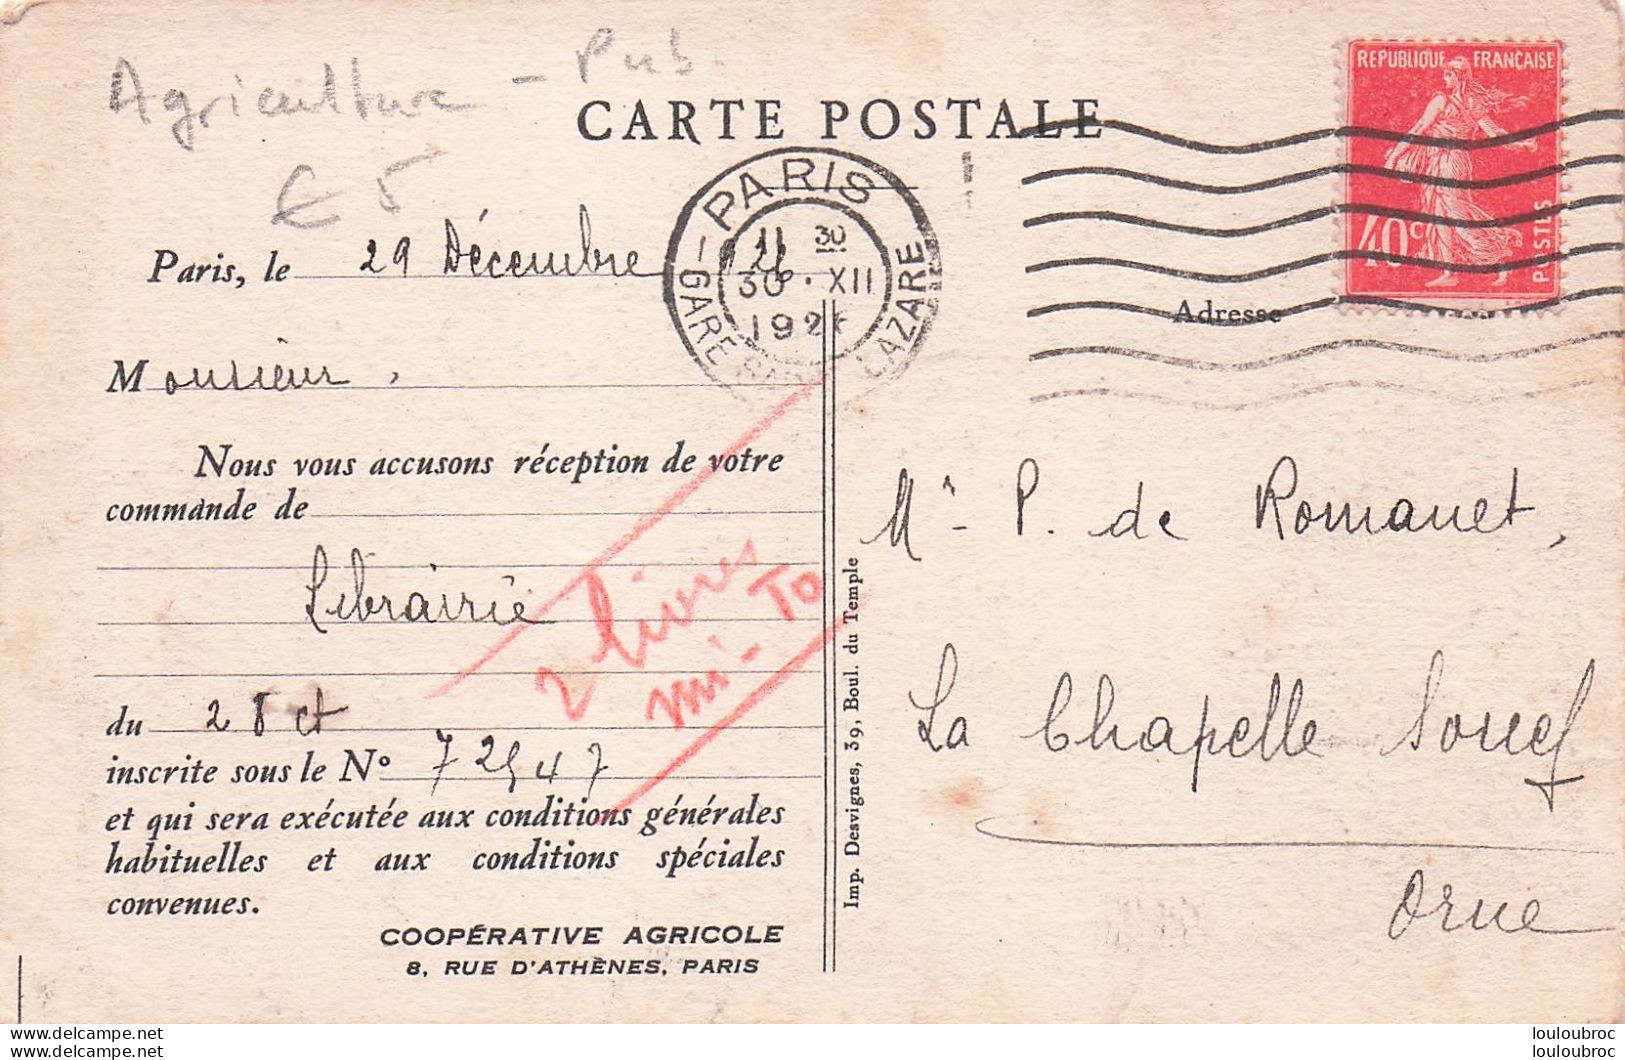 Agriculture - Pub.
€ 5
CARTE POSTALE
REPUBLIQUE FRANÇAISE
40c
POSTES
PARIS
GARE LAZARE
11 30
30 · XII
192
Paris, le 29 Décembre
Adresse
Monsieur,
Nous vous accusons réception de votre
commande de
Librairie
2 livres
mi-To
du 28 ct
inscrite sous le Nº 72547
et qui sera exécutée aux conditions générales
habituelles et aux conditions spéciales
convenues.
COOPÉRATIVE AGRICOLE
8, RUE D'ATHÈNES, PARIS
Imp. Desvignes, 39, Boul. du Temple
Mr. P. de Romanet,
La Chapelle Souëf
Orne
www.delcampe.net
www.delcampe.net
louloubroc
louloubroc